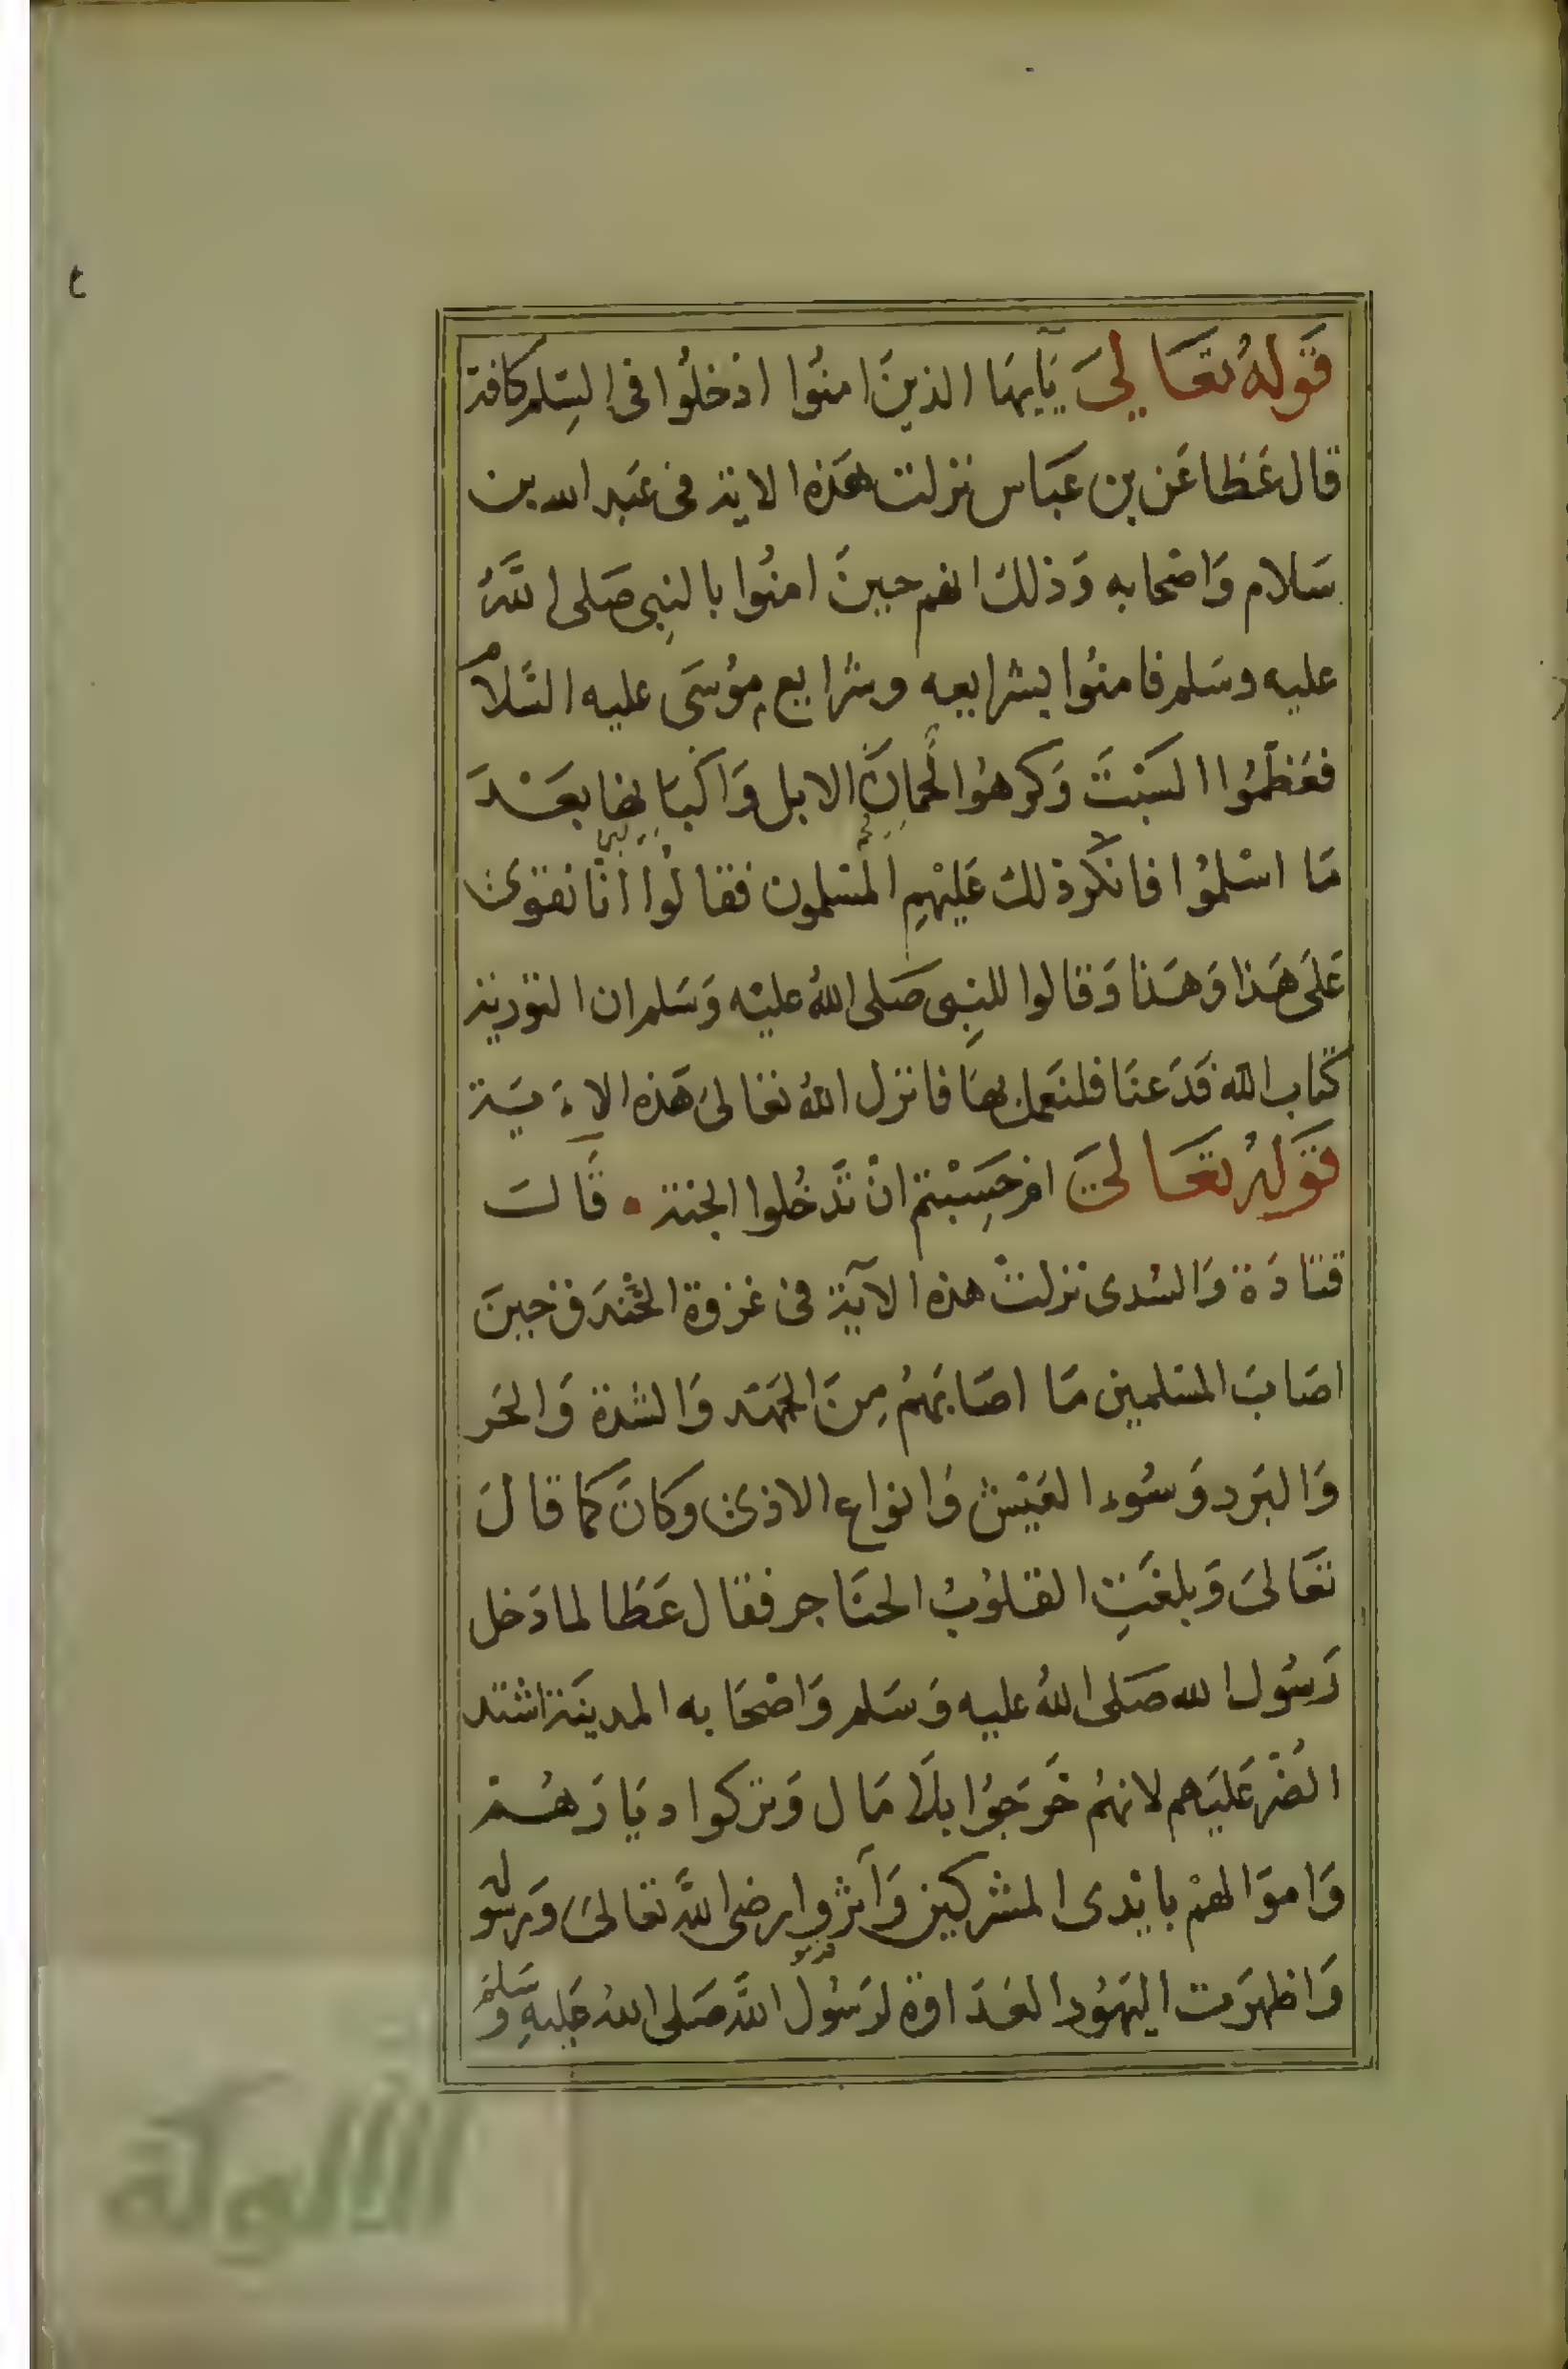 قوله تعالى يٰٓايها الذينَ امنوُا ادْخلوُا فى السِلم كافة
قال عَطا عَن بن عَبَاس نزلت هَذه الاية فى عَبد الله بن
سَلام وَاصْحابه وَذلك انهم حينَ امنُوا بالنبِى صَلى اللَّهُ
عليه وسَلم فامنوُا بشرايعه وشرايع موُسَى عليه السَلام
فعَظمُوا السَبْتَ وَكرهوُا لُحمانَ الابل وَالْبَانِها بعَدَ
مَا اسْلموُا فانكر ذلك عَليْهِم المسْلمون فقالوُا انا نقوىٰ
عَلى هَذا وَهَذا وَقالوا للنبِى صَلى اللهُ عليْه وَسَلم ان التورية
كتاب الله فَدَعنَا فلنعمل بهَا فانزل اللهُ تعَالىَ هَذه الاءَية
قوَلهُ تعَالىَ ام حَسِبْتم انْ تَدْخُلوا الجنة . قَالَ
قتادَة وَالسُدى نزلتْ هذه الآية فى غزوة الخنْدَق حينَ
اصَابَ المسْلمين مَا اصَابَهمُ مِنَ الجَهَد وَالشدة وَالحَر
وَالبَرد وَسُوء العَيْش وَانواع الاذىٰ وكانَ كما قالَ
تعَالىَ وَبلغَتِ القلوُبُ الحنَاجر فقال عَطَا لما دَخل
رَسُول الله صَلى اللهُ عليه وَسَلم وَاصْحَابه المدينَة اشتد
الضُر عَليَهم لانهمُ خَرَجوُا بلَا مَال وَتركوا ديَارَهُمْ
وَاموَالهمْ بايْدى المشركين وَآثرُوا رضى اللَّه تعَالىَ وَرسُوله
وَاظهرَت اليَهُود العَدَاوة لرَسُول اللَّه صَلى اللهُ عَليهِ وَسَلمَ
الألوكة